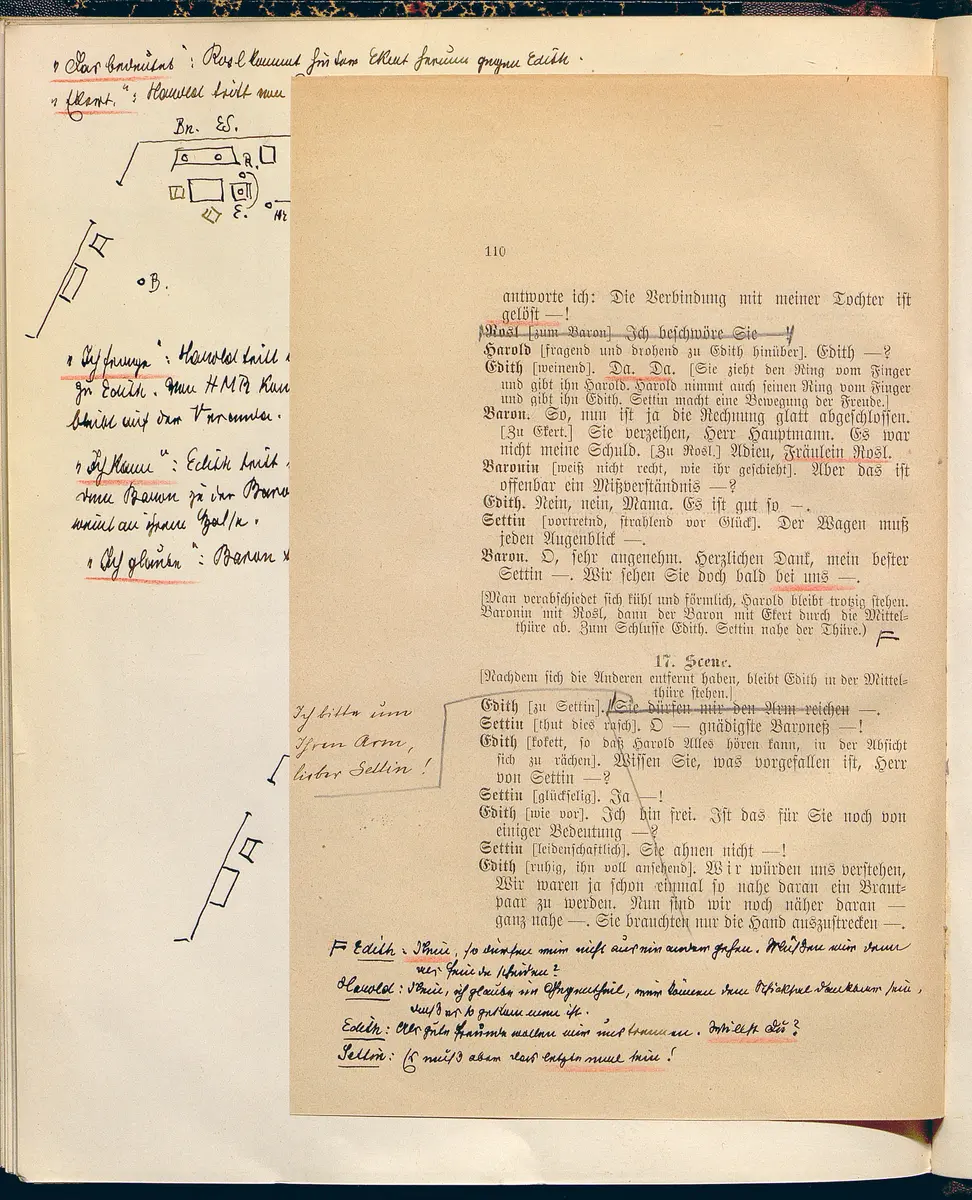 "Das bedeutet": Rosl kommt hinter Ekert herum gegen Edith.
"Ekert.": Harold tritt von
Bn. Ed.
R.
E.
Hr
B.
"Ich frage": Harold tritt
zu Edith. Von HMR kom
bleibt auf der Veranda.
"Ich kann": Edith tritt
dem Baron zu der Baro
weint an ihrem Halse.
"Ich glaube": Baron
110
antworte ich: Die Verbindung mit meiner Tochter ist
gelöst —!
Rosl [zum Baron] Ich beschwöre Sie —!
Harold [fragend und drohend zu Edith hinüber]. Edith —?
Edith [weinend]. Da. Da. [Sie zieht den Ring vom Finger
und gibt ihn Harold. Harold nimmt auch seinen Ring vom Finger
und gibt ihn Edith. Settin macht eine Bewegung der Freude.]
Baron. So, nun ist ja die Rechnung glatt abgeschlossen.
[Zu Ekert.] Sie verzeihen, Herr Hauptmann. Es war
nicht meine Schuld. [Zu Rosl.] Adieu, Fräulein Rosl.
Baronin [weiß nicht recht, wie ihr geschieht]. Aber das ist
offenbar ein Mißverständnis —?
Edith. Nein, nein, Mama. Es ist gut so —.
Settin [vortretnd, strahlend vor Glück]. Der Wagen muß
jeden Augenblick —.
Baron. O, sehr angenehm. Herzlichen Dank, mein bester
Settin —. Wir sehen Sie doch bald bei uns —.
[Man verabschiedet sich kühl und förmlich, Harold bleibt trotzig stehen.
Baronin mit Rosl, dann der Baron mit Ekert durch die Mittel-
thüre ab. Zum Schlusse Edith. Settin nahe der Thüre.)
17. Scene.
[Nachdem sich die Anderen entfernt haben, bleibt Edith in der Mittel-
thüre stehen.]
Edith [zu Settin]. Sie dürfen mir den Arm reichen —.
Ich bitte um
Ihren Arm,
lieber Settin!
Settin [thut dies rasch]. O — gnädigste Baroneß —!
Edith [kokett, so daß Harold Alles hören kann, in der Absicht
sich zu rächen]. Wissen Sie, was vorgefallen ist, Herr
von Settin —?
Settin [glückselig]. Ja —!
Edith [wie vor]. Ich bin frei. Ist das für Sie noch von
einiger Bedeutung —?
Settin [leidenschaftlich]. Sie ahnen nicht —!
Edith [ruhig, ihn voll ansehend]. Wir würden uns verstehen,
Wir waren ja schon einmal so nahe daran ein Braut-
paar zu werden. Nun sind wir noch näher daran —
ganz nahe —. Sie brauchten nur die Hand auszustrecken —.
Edith: Nein, so dürfen wir nicht auseinander gehen. Müssen wir denn
als Feinde scheiden?
Harold: Nein, ich glaube im Gegentheil, wir können dem Schicksal dankbar sein,
daß es so gekommen ist.
Edith: Als gute Freunde wollen wir uns trennen. Willst du?
Settin: Es muß aber das letzte mal sein!